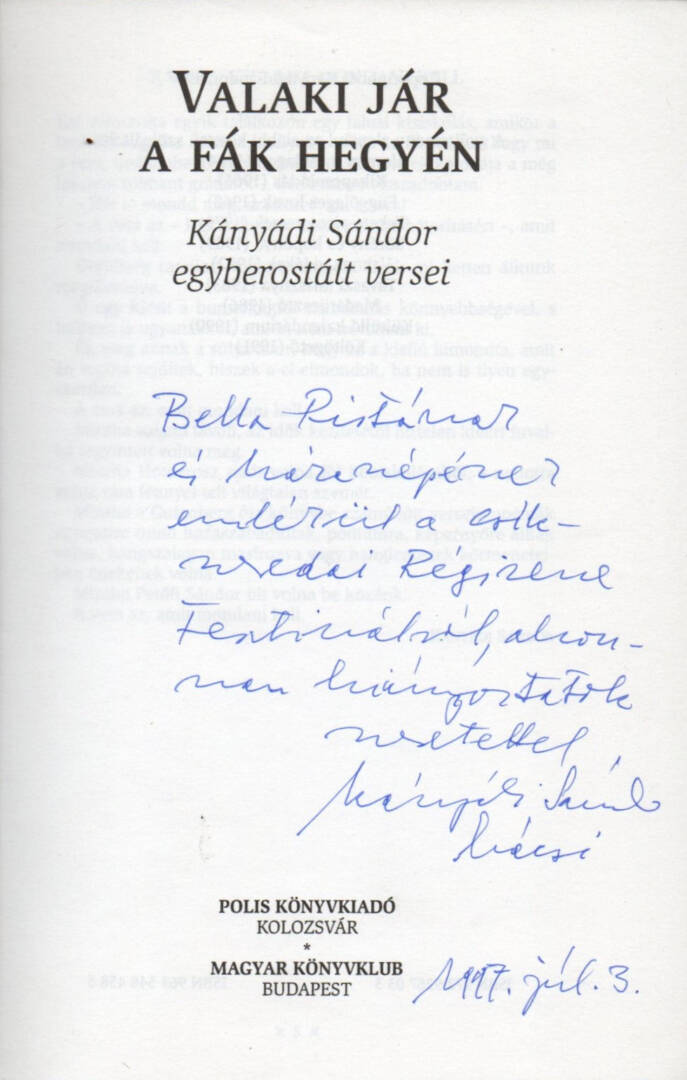 VALAKI JÁR
A FÁK HEGYÉN
Kányádi Sándor
egyberostált versei
Bella Pistának
és háranépének
emlékül a csík-
szeredai Régizene
Fesztiválról, ahon-
nan hiányoztatok
szeretettel
Kányádi Sándor
bácsi
POLIS KÖNYVKIADÓ
KOLOZSVÁR
*
MAGYAR KÖNYVKLUB
BUDAPEST
1997. júl. 3.